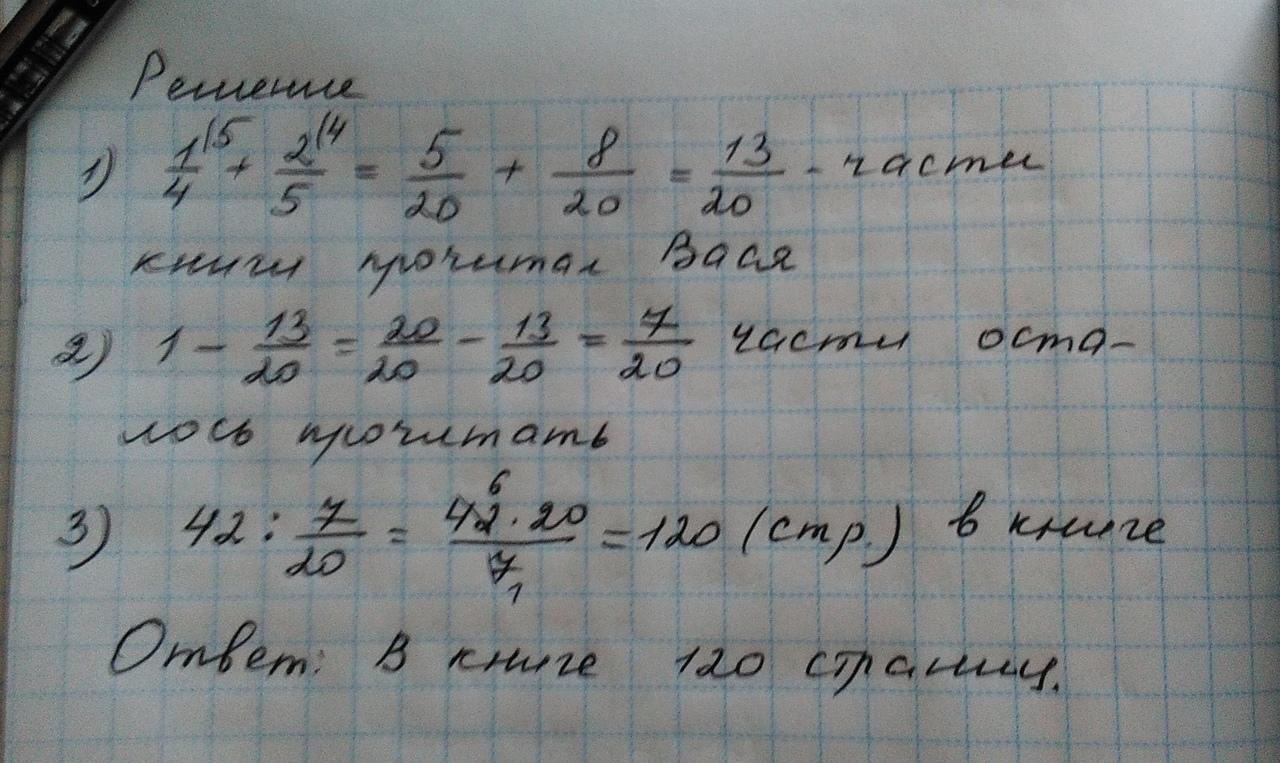 Решение
1) 1/4 (5 + 2/5 (4 = 5/20 + 8/20 = 13/20 - части
книги прочитал Вася
2) 1 - 13/20 = 20/20 - 13/20 = 7/20 части оста-
лось прочитать
3) 42 : 7/20 = 42 6 · 20 / 7 1 = 120 (стр.) в книге
Ответ: В книге 120 страниц.